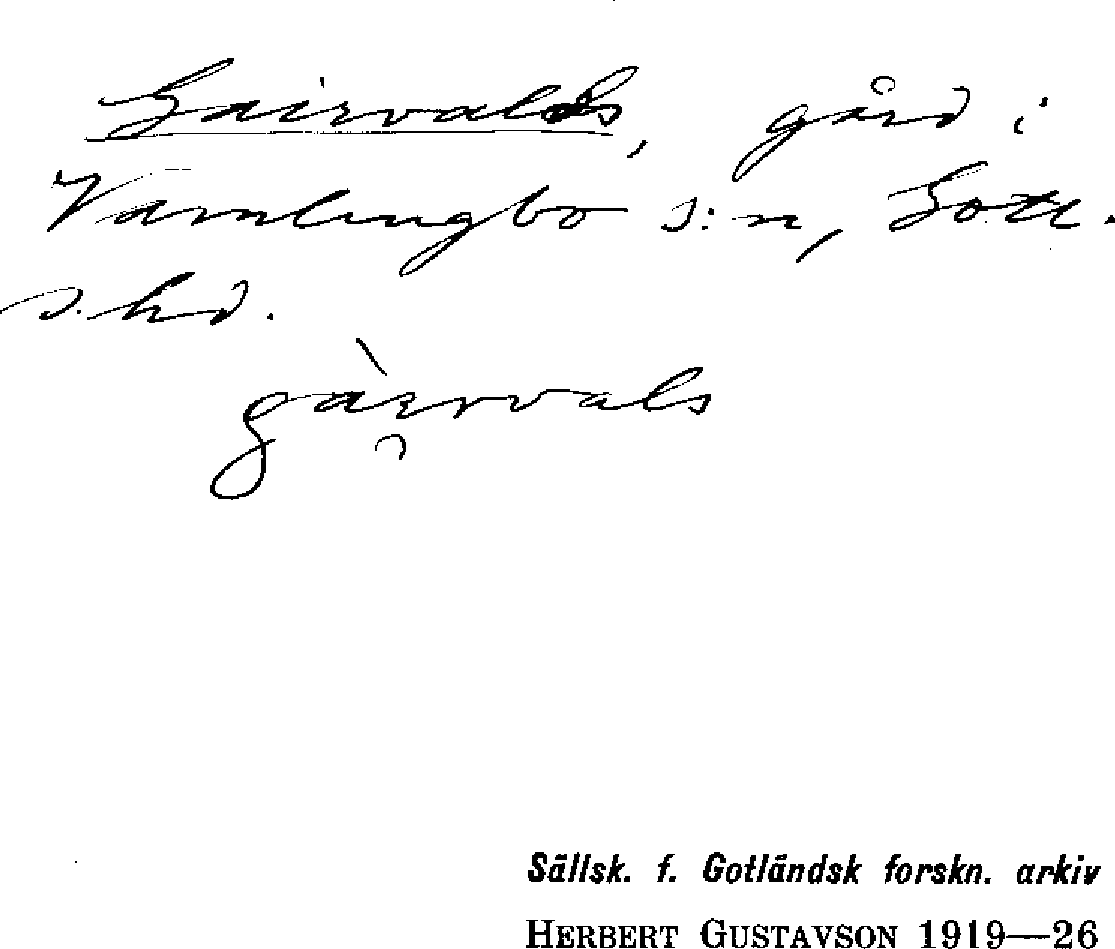 Gairvalds, gård i
Vamlingbo s:n, Gotl.
s. hd.
gàɪrvals
Sällsk. f. Gotländsk forskn. arkiv
HERBERT GUSTAVSON 1919—26